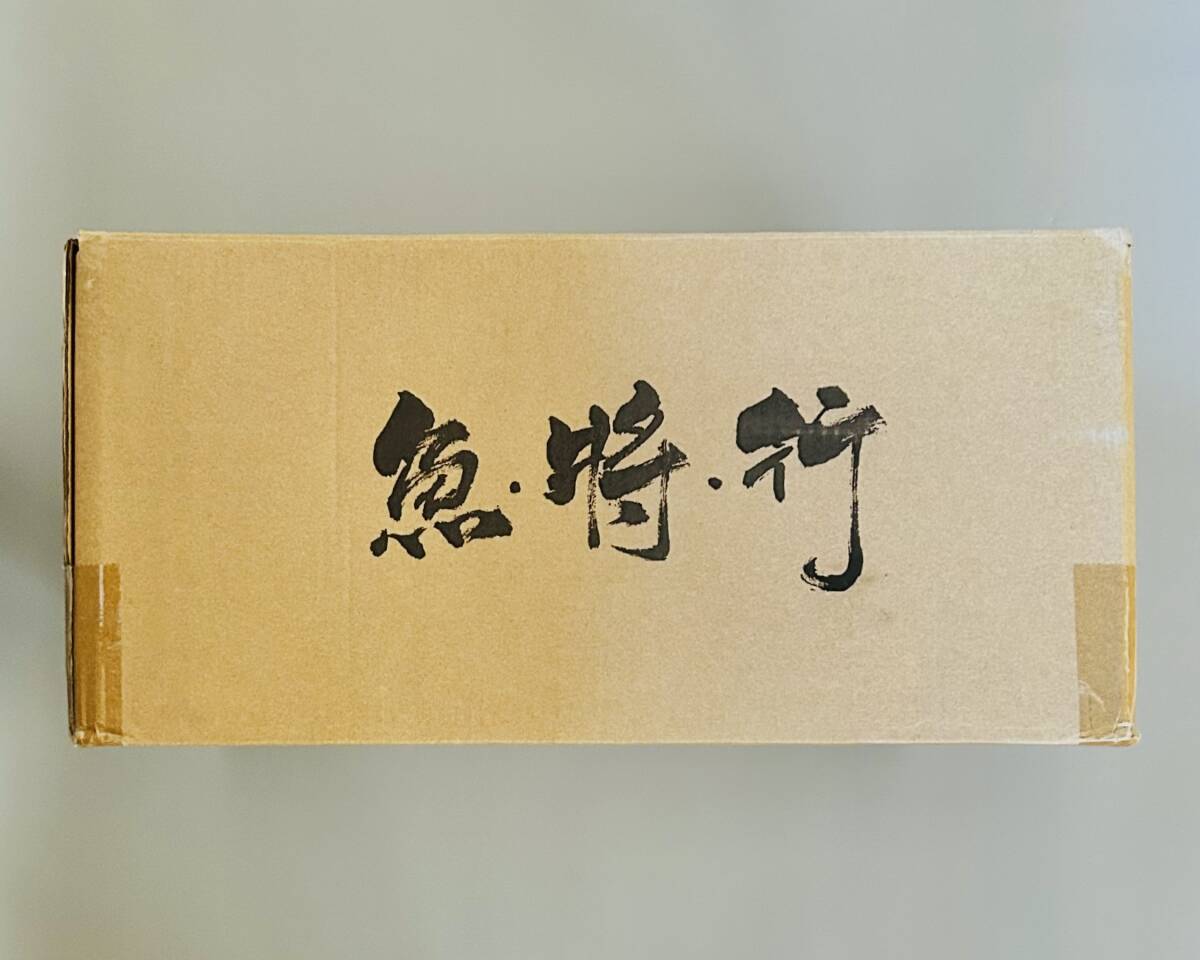 魚·將·行